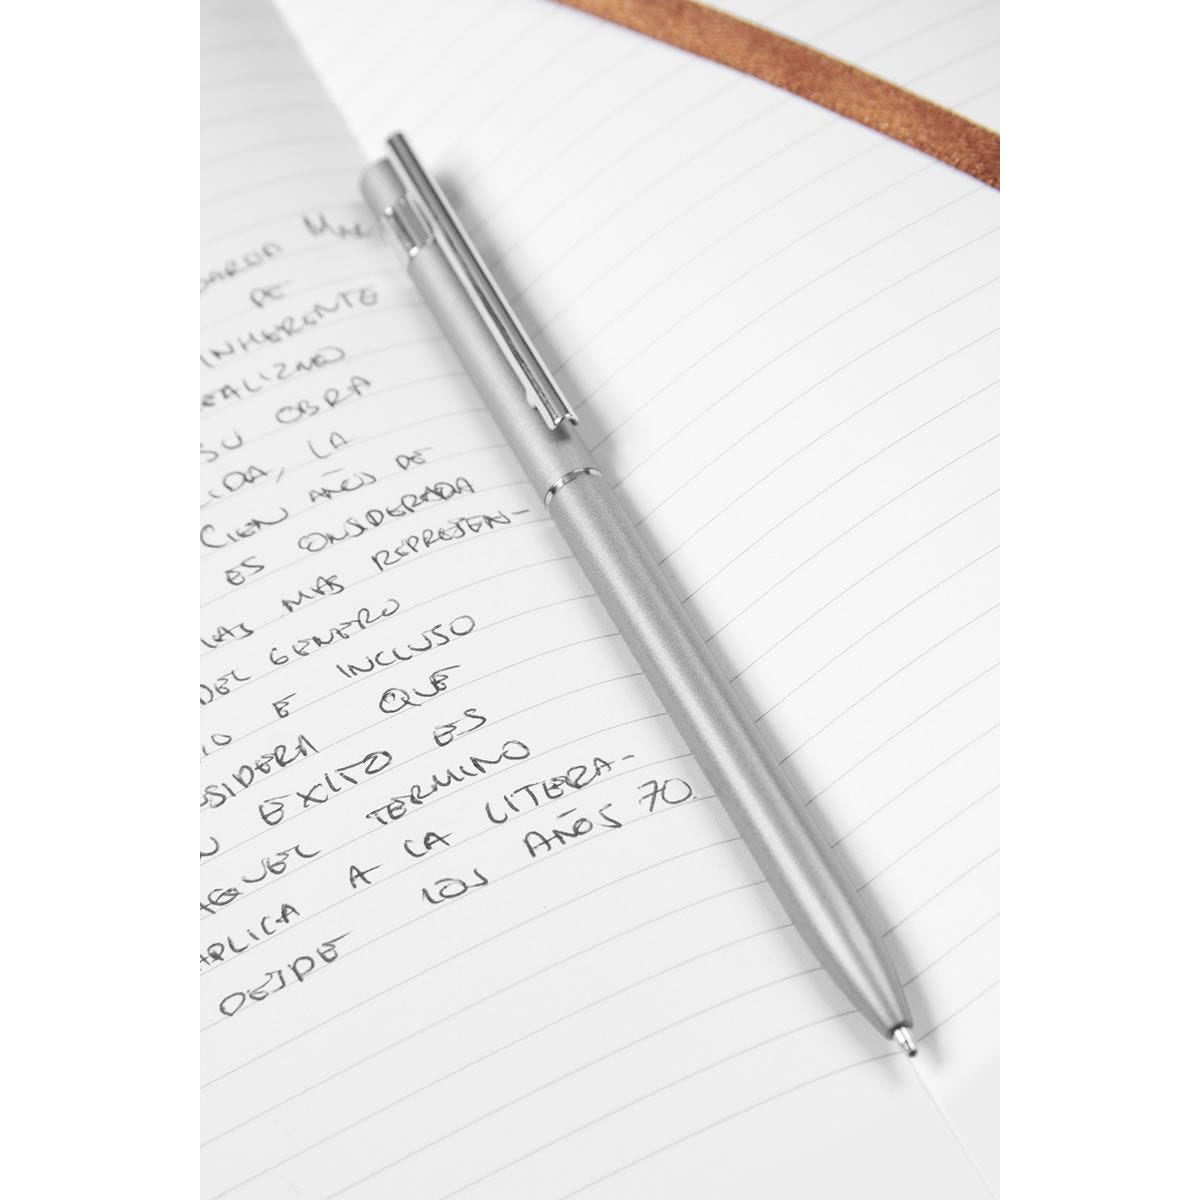 GARCIA MAR
DE
INHERENTE
REALIZMO
SU OBRA
LIDA, LA
CIEN AÑOS DE
ES ONSIDERADA
LAS MAS REPRESEN-
DEL GENERO
IO E INCLUSO
SIDERA QUE
N EXITO ES
AQUEL TERMINO
APLICA A LA LITERA-
DESDE LOS AÑOS 70.